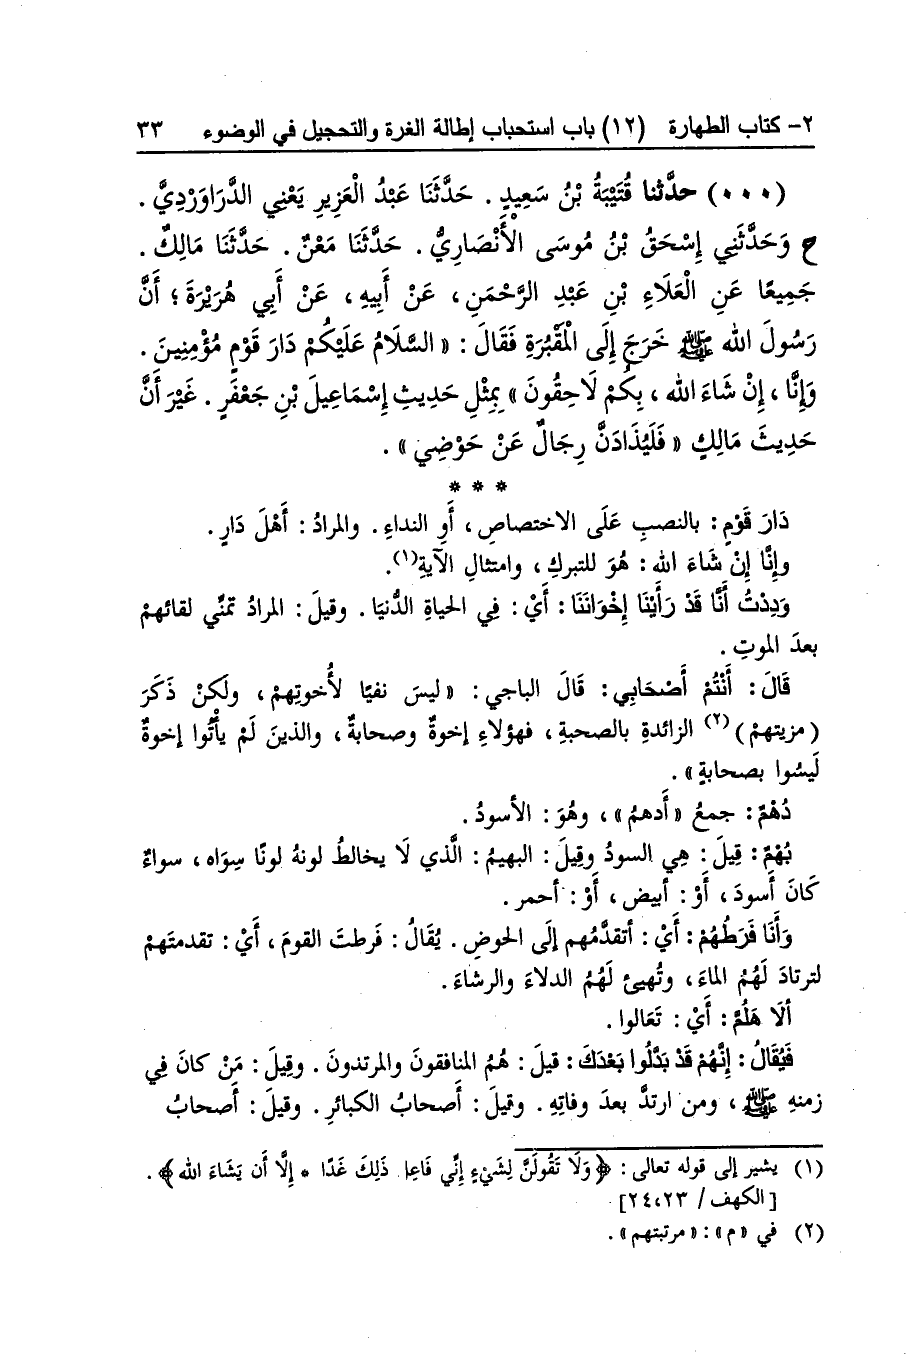 ٢- كتاب الطهارة (١٢) باب استحباب إطالة الغرة والتحجيل في الوضوء ٣٣
(٠٠٠) حدَّثنا قُتَيْبَةُ بْنُ سَعِيدٍ . حَدَّثَنَا عَبْدُ الْعَزِيزِ يَعْنِي الدَّرَاوَرْدِيَّ .
ح وَحَدَّثَنِي إِسْحَقُ بْنُ مُوسَى الْأَنْصَارِيُّ . حَدَّثَنَا مَعْنٌ . حَدَّثَنَا مَالِكٌ .
جَمِيعًا عَنِ الْعَلَاءِ بْنِ عَبْدِ الرَّحْمَنِ ، عَنْ أَبِيهِ ، عَنْ أَبِي هُرَيْرَةَ ؛ أَنَّ
رَسُولَ الله ﷺ خَرَجَ إِلَى الْمَقْبُرَةِ فَقَالَ : « السَّلَامُ عَلَيْكُمْ دَارَ قَوْمٍ مُؤْمِنِينَ .
وَإِنَّا ، إِنْ شَاءَ الله ، بِكُمْ لَاحِقُونَ » بِمِثْلِ حَدِيثِ إِسْمَاعِيلَ بْنِ جَعْفَرٍ . غَيْرَ أَنَّ
حَدِيثَ مَالِكٍ « فَلَيُذَادَنَّ رِجَالٌ عَنْ حَوْضِي » .
* * *
دَارَ قَوْمٍ : بالنصبِ عَلَى الاختصاصِ ، أَوِ النداءِ . والمرادُ : أَهْلَ دَارٍ .
وإِنَّا إِنْ شَاءَ الله : هُوَ للتبركِ ، وامتثالِ الآيةِ(١).
وَدِدْتُ أَنَّا قَدْ رَأَيْنَا إِخْوَانَنَا : أَيْ : فِي الحياةِ الدُّنيَا . وقيلَ : المرادُ تمنِّي لقائهمْ
بعدَ الموتِ .
قَالَ : أَنْتُمْ أَصْحَابِي : قَالَ الباجي : « ليسَ نفيًا لأُخوتِهمْ ، ولَكنْ ذَكَرَ
( مزيتهمْ )(٢) الزائدةِ بالصحبةِ ، فهؤلاءِ إخوةٌ وصحابةٌ ، والذينَ لَمْ يأْتُوا إخوةٌ
لَيسُوا بصحابةٍ » .
دُهْمٌ : جمعُ « أَدهمُ » ، وهُوَ : الأسودُ .
بُهْمٌ : قِيلَ : هِي السودُ وقِيلَ : البهيمُ : الَّذي لَا يخالطُ لونهُ لونًا سِوَاه ، سواءٌ
كَانَ أَسودَ ، أَوْ : أبيض ، أَوْ : أحمر .
وَأَنَا فَرَطُهُمْ : أَيْ : أتقدَّمُهم إلَى الحوضِ . يُقَالُ : فَرطتَ القومَ ، أَيْ : تقدمتَهمْ
لترتادَ لَهُمُ الماءَ ، وتُهيئَ لَهُمُ الدلاءَ والرشاءَ .
ألَا هَلُمَّ : أَيْ : تَعَالوا .
فَيُقَالُ : إِنَّهُمْ قَدْ بَدَّلُوا بَعْدَكَ : قيلَ : هُمُ المنافقونَ والمرتدونَ . وقِيلَ : مَنْ كانَ فِي
زمنهِ ﷺ ، ومن ارتدَّ بعدَ وفاتِهِ . وقيلَ : أَصحابُ الكبائرِ . وقيلَ : أَصحابُ
(١) يشير إلى قوله تعالى : ﴿ وَلَا تَقُولَنَّ لِشَيْءٍ إِنِّي فَاعِلٌ ذَلِكَ غَدًا * إِلَّا أَن يَشَاءَ الله ﴾ .
[ الكهف / ٢٣، ٢٤]
(٢) في «م» : « مرتبتهم » .